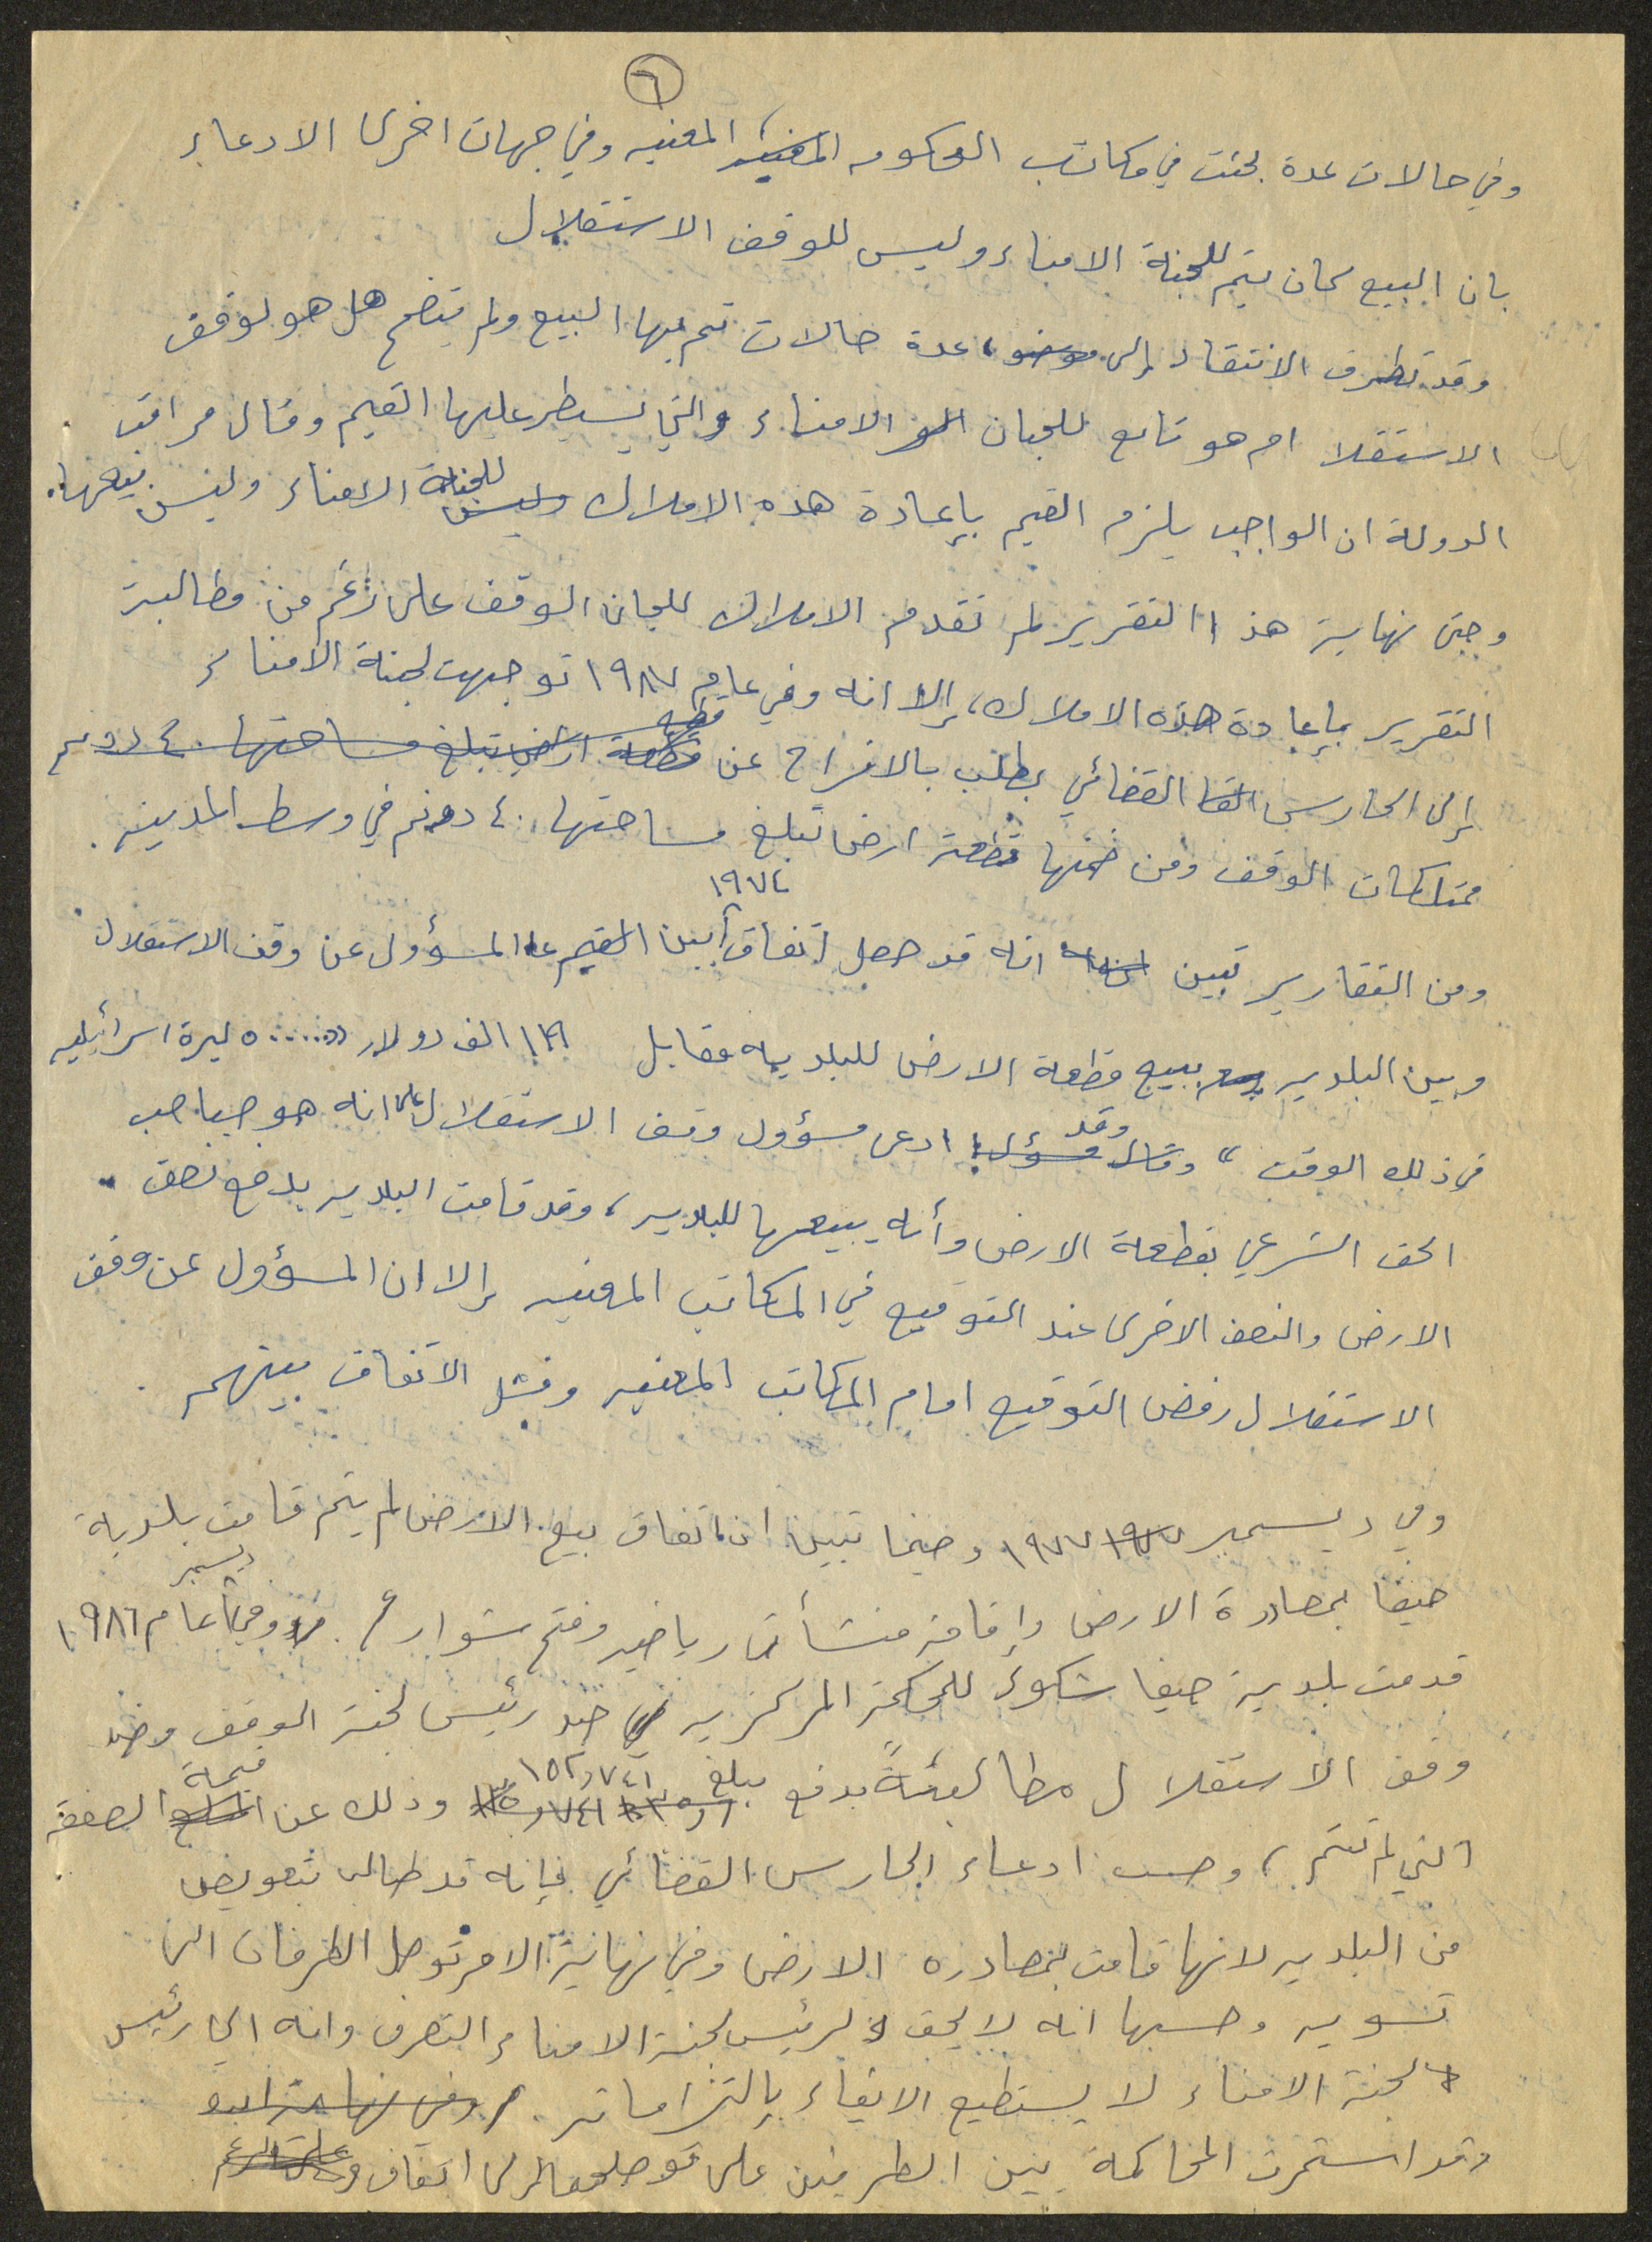 ٦
وفي حالات عدة بحثت في مكاتب الحكومه المعنيه المعنيه وفي جهات اخرى الادعاء
بان البيع كان يتم للجنة الامناء وليس للوقف الاستقلال
وقد تطرق الانتقاد إلى موضوع، عدة حالات تم بها البيع ولم يتضح هل هو لوقف
الاستقلا ام هو تابع للجان الامناء والتي يسيطر عليها القيم وقال مراقب
الدولة ان الواجب يلزم القيم بإعادة هذه الاملاك وليس للجنة الامناء وليس بيعها.
وحتى نهاية هذا التقرير لم تقدم الاملاك للجان الوقف على رغم من مطالبة
التقرير بإعادة هذه الاملاك، إلا انه وفي عام ١٩٨٧ توجهت لجنة الأمناء
إلى الحارس القضائي بطلب بالافراج عن قطعة ارض تبلغ مساحتها ٤٠ دونم
ممتلكات الوقف ومن ضمنها قطعة ارض تبلغ مساحتها ٤٠ دونم في وسط المدينه.
ومن التقارير تبين انه قد حصل اتفاق ١٩٧٤ بين القيم المسؤول عن وقف الاستقلال
وبين البلديه ببيع قطعة الارض للبلديه مقابل الف دولار ليرة اسرائيليه
في ذلك الوقت" وقال مسؤول وقد ادعى مسؤول وقف الاستقلال على انه هو صاحب
الحق الشرعي بقطعة الارض وأنه يبيعها للبلديه، وقد قامت البلديه بدفع نصف
الارض والنصف الاخرى عند التوقيع في المكاتب المعنيه إلا ان المسؤول عن وقف
الاستقلال رفض التوقيع امام المكاتب المعنيه وفشل الاتفاق بينهم.
وفي ديسمبر ١٩٧٧ وحينما تبين ان اتفاق بيع الارض لم يتم قامت بلدية
حيفا بمصادرة الارض وإقامة منشأت رياضيه وفتح شوارع. وفي ديسمبر عام ١٩٨٦
قدمت بلدية حيفا شكوى للمحكمة المركزيه ضد رئيس لجنة الوقف وضد
وقف الاستقلال مطالبةً بدفع مبلغ ١٥٢,٧٤١ وذلك عن المبلغ قيمة الصفقة
التي لم تتم، وحسب ادعاء الحارس القضائي فإنه قد طالب بتعويض
من البلديه لانها قامت بمصادره الارض وفي نهاية الامر توصل الطرفان الى
تسويه وحسبها انه لا يحق لرئيس لجنة الامناء التصرف وانه اي رئيس
لجنة الامناء لا يستطيع الايفاء بإلتزاماته. وفي نهاية
وقد استمرت المحاكمة بين الطرفين على توصلهما إلى اتفاق